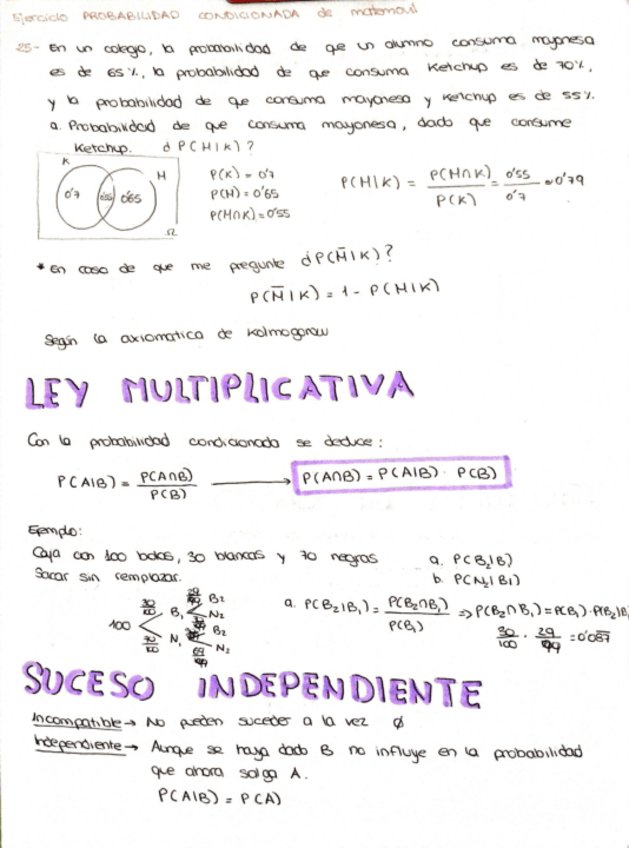 Ejercicio PROBABILIDAD CONDICIONADA de matemovil
25- En un colegio, la probabilidad de que un alumno consuma mayonesa
es de 65%, la probabilidad de que consuma Ketchup es de 70%,
y la probabilidad de que consuma mayonesa y ketchup es de 55%.
a. Probabilidad de que consuma mayonesa, dado que consume
Ketchup. ¿P(M|K)?
K M
0'7 0'55 0'65
Ω
P(K) = 0'7
P(M) = 0'65
P(M∩K) = 0'55
P(M|K) = P(M∩K) / P(K) = 0'55 / 0'7 ≈ 0'79
* En caso de que me pregunte ¿P(M̅|K)?
P(M̅|K) = 1 - P(M|K)
Según la axiomatica de Kolmogorow
LEY MULTIPLICATIVA
Con la probabilidad condicionada se deduce:
P(A|B) = P(A∩B) / P(B) → P(A∩B) = P(A|B) · P(B)
Ejemplo:
Caja con 100 bolas, 30 blancas y 70 negras
Sacar sin remplazar.
a. P(B₂|B₁)
b. P(N₂|B₁)
100
30/100 B₁
70/100 N₁
B₂
N₂
B₂
N₂
a. P(B₂|B₁) = P(B₂∩B₁) / P(B₁) => P(B₂∩B₁) = P(B₁)·P(B₂|B
30/100 · 29/99 = 0'087
SUCESO INDEPENDIENTE
Incompatible → No pueden suceder a la vez ∅
Independiente → Aunque se haya dado B no influye en la probabilidad
que ahora salga A.
P(A|B) = P(A)